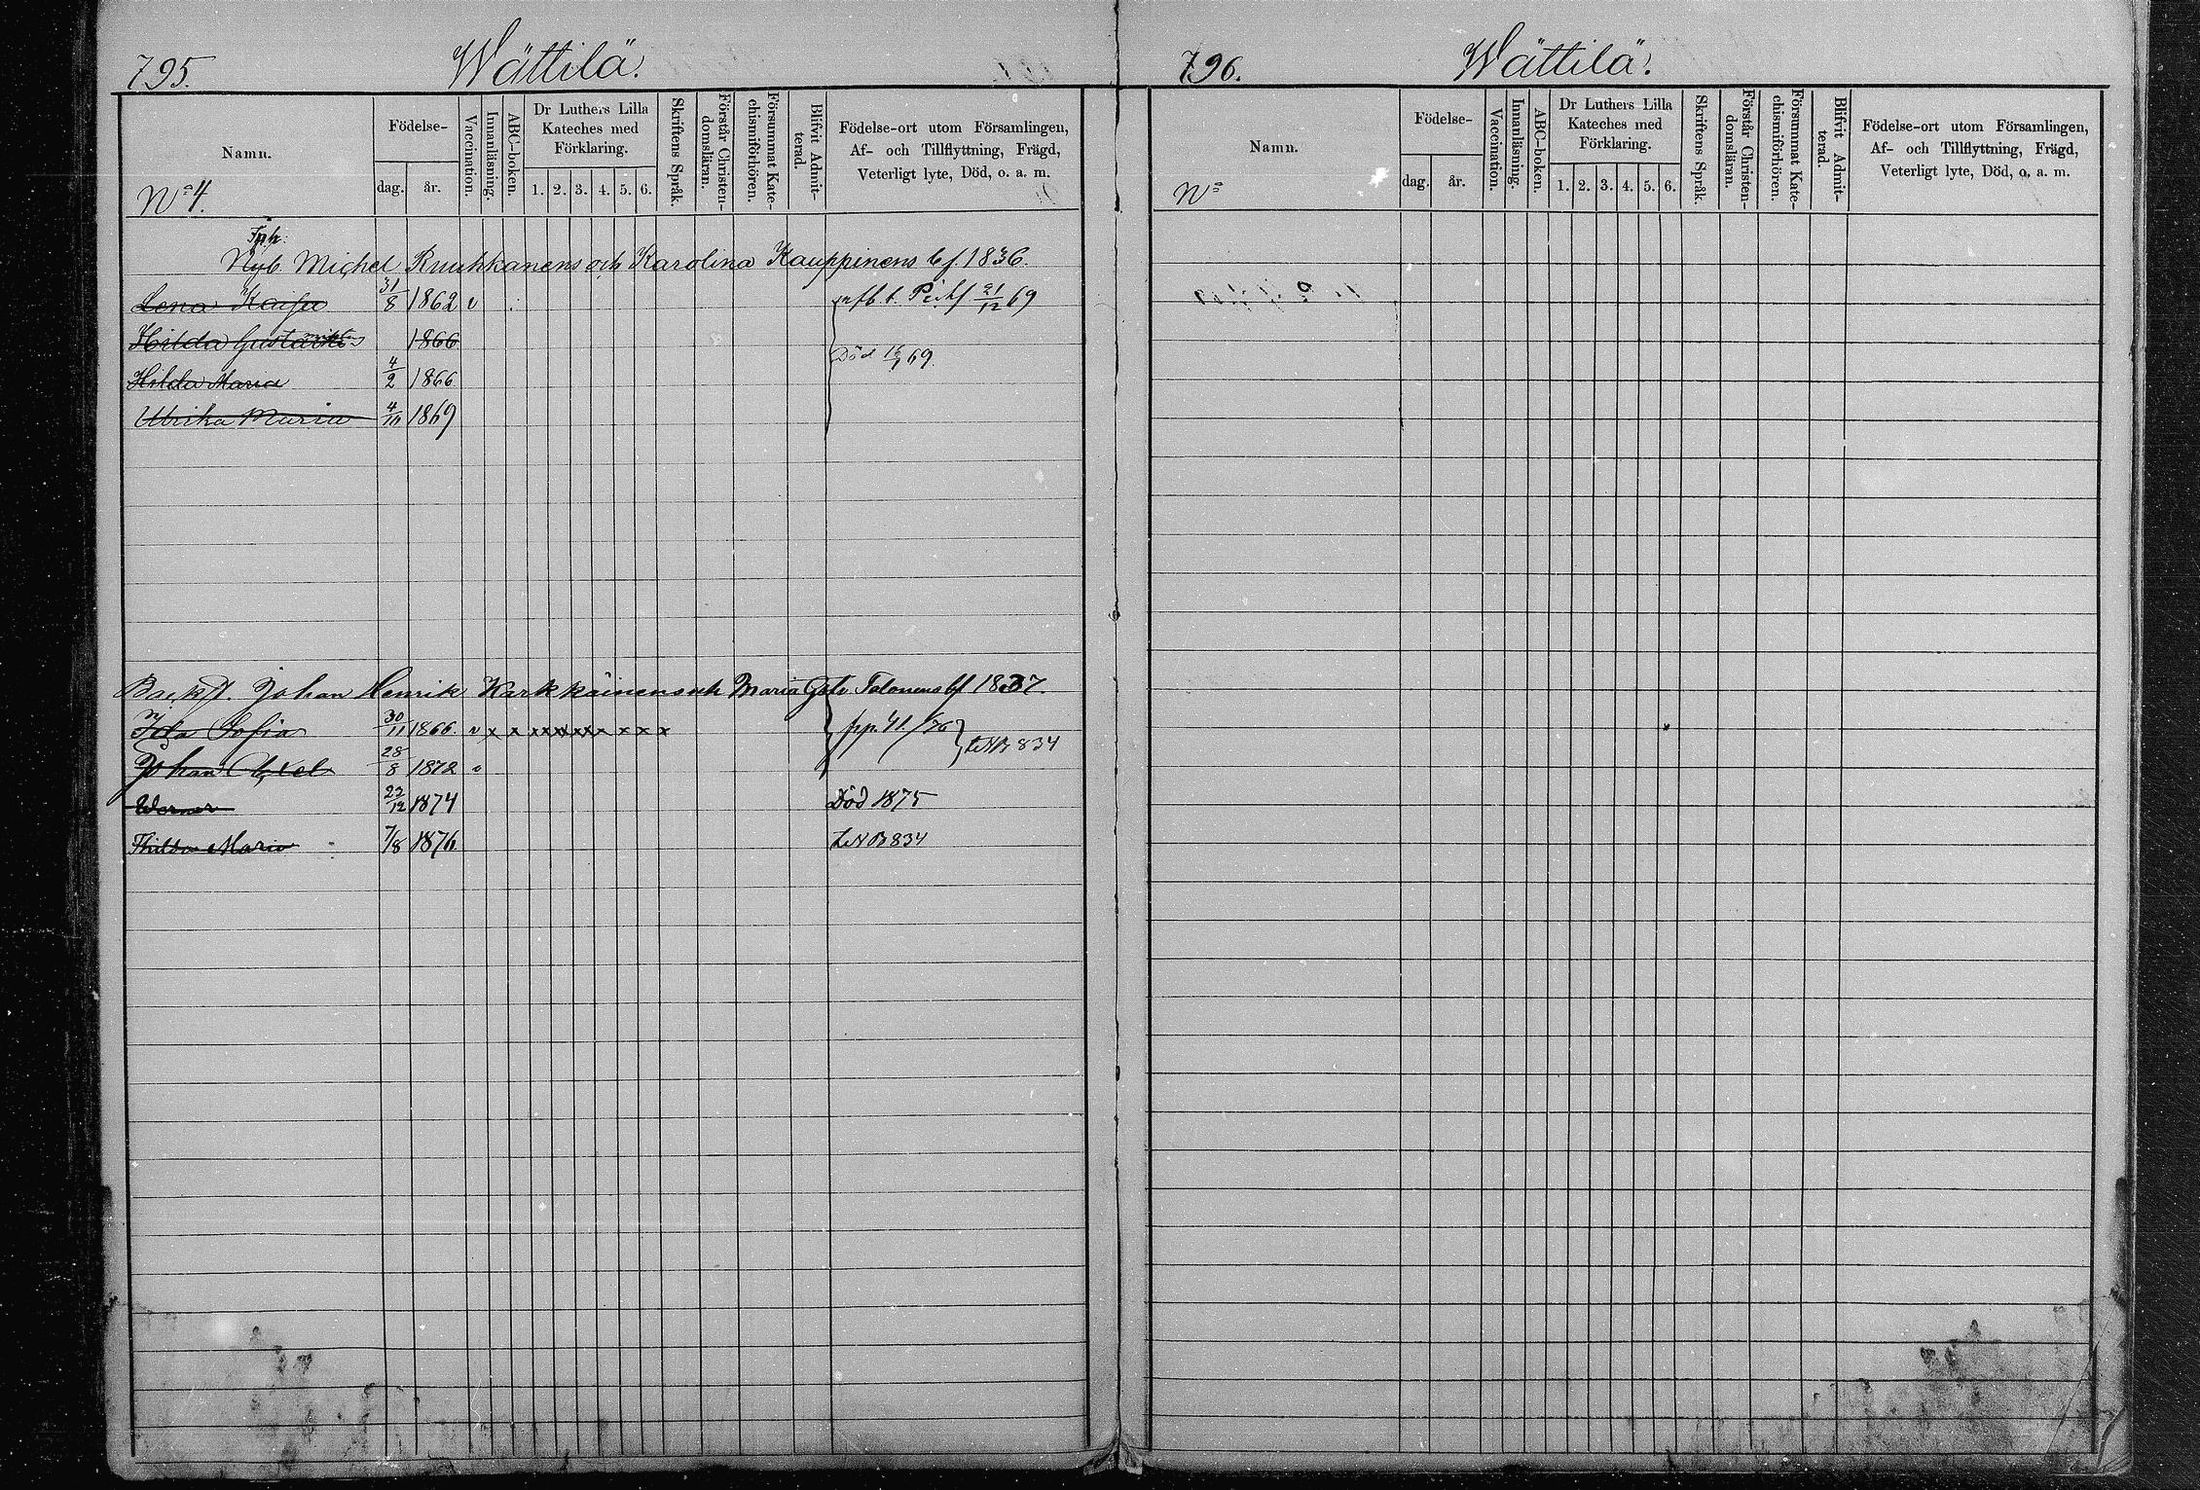 795. Wättilä.
Namn.
Födelse-
dag. år.
Vaccination.
Innanläsning.
ABC-boken.
Dr Luthers Lilla
Kateches med
Förklaring.
1. 2. 3. 4. 5. 6.
Skriftens Språk.
Förstår Christen-
domsläran.
Försummat Kate-
chismiförhören.
Blifvit Admit-
terad.
Födelse-ort utom Församlingen,
Af- och Tillflyttning, Frägd,
Veterligt lyte, Död, o. a. m.
No 4.
Inh:
Nyb. Michel Ruuhkanens och Karolina Kauppinens bf. 1836.
Lena Kaisa 31/8 1862 v 21/12 69
Hilda Gustava 1866
Död 69.
Hilda Maria 4/2 1866
Ulrika Maria 4/10 1869
Johan Henrik Karkkäinens och Maria Tolonens bf 1837.
Ida Sofia 30/11 1866. v x x x x x x x x x x x
834
Johan Axel 28/8 1872 v
Werner 22/12 1874 Död 1875
Thilda Maria 7/8 1876 834
796. Wättilä.
Namn.
Födelse-
dag. år.
Vaccination.
Innanläsning.
ABC-boken.
Dr Luthers Lilla
Kateches med
Förklaring.
1. 2. 3. 4. 5. 6.
Skriftens Språk.
Förstår Christen-
domsläran.
Försummat Kate-
chismiförhören.
Blifvit Admit-
terad.
Födelse-ort utom Församlingen,
Af- och Tillflyttning, Frägd,
Veterligt lyte, Död, o. a. m.
No